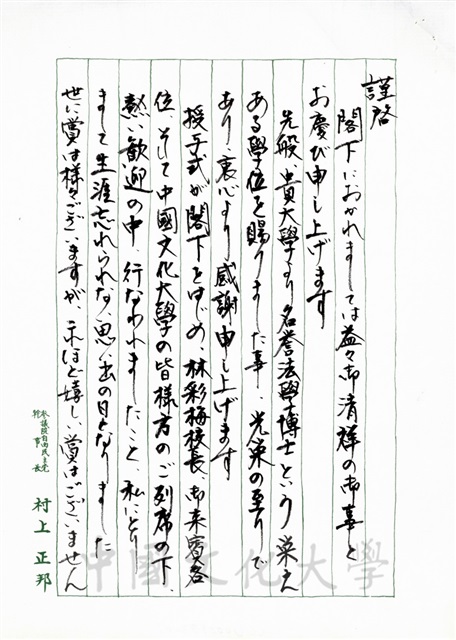 謹啓
閣下におかれましては益々御清祥の御事と
お慶び申し上げます
先般、貴大學より名誉法學博士という栄え
ある學位を賜りました事、光栄の至りで
あり、衷心より感謝申し上げます
授与式が閣下をはじめ、林彩梅校長、御来賓各
位、そして中國文化大學の皆様方のご列席の下、
熱い歓迎の中、行なわれましたこと、私にとり
まして生涯忘れられない思い出の日となりました
世に賞は様々ございますが、これほど嬉しい賞はございません
参議院自由民主党
幹事長
村上正邦
中國文化大學